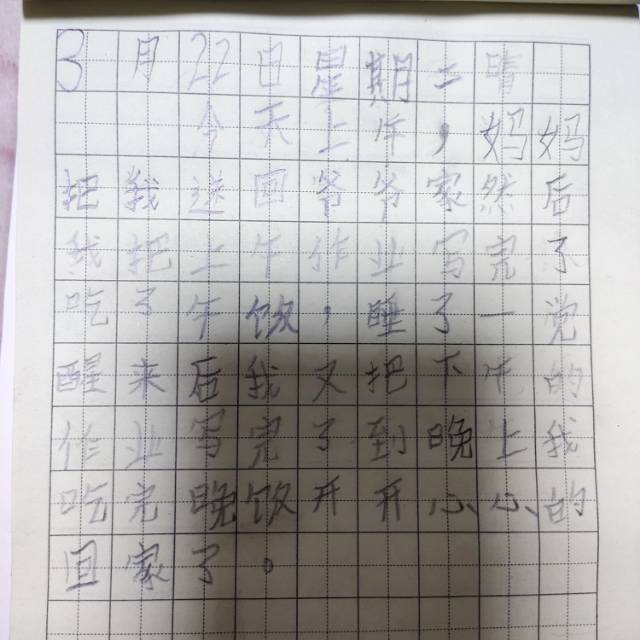 3月22日星期二晴
今天上午，妈妈
把我送回爷爷家然后
我把上午作业写完了
吃了午饮，睡了一觉
醒来后我又把下午的
作业写完了到晚上我
吃完晚饮开开心心的
回家了。